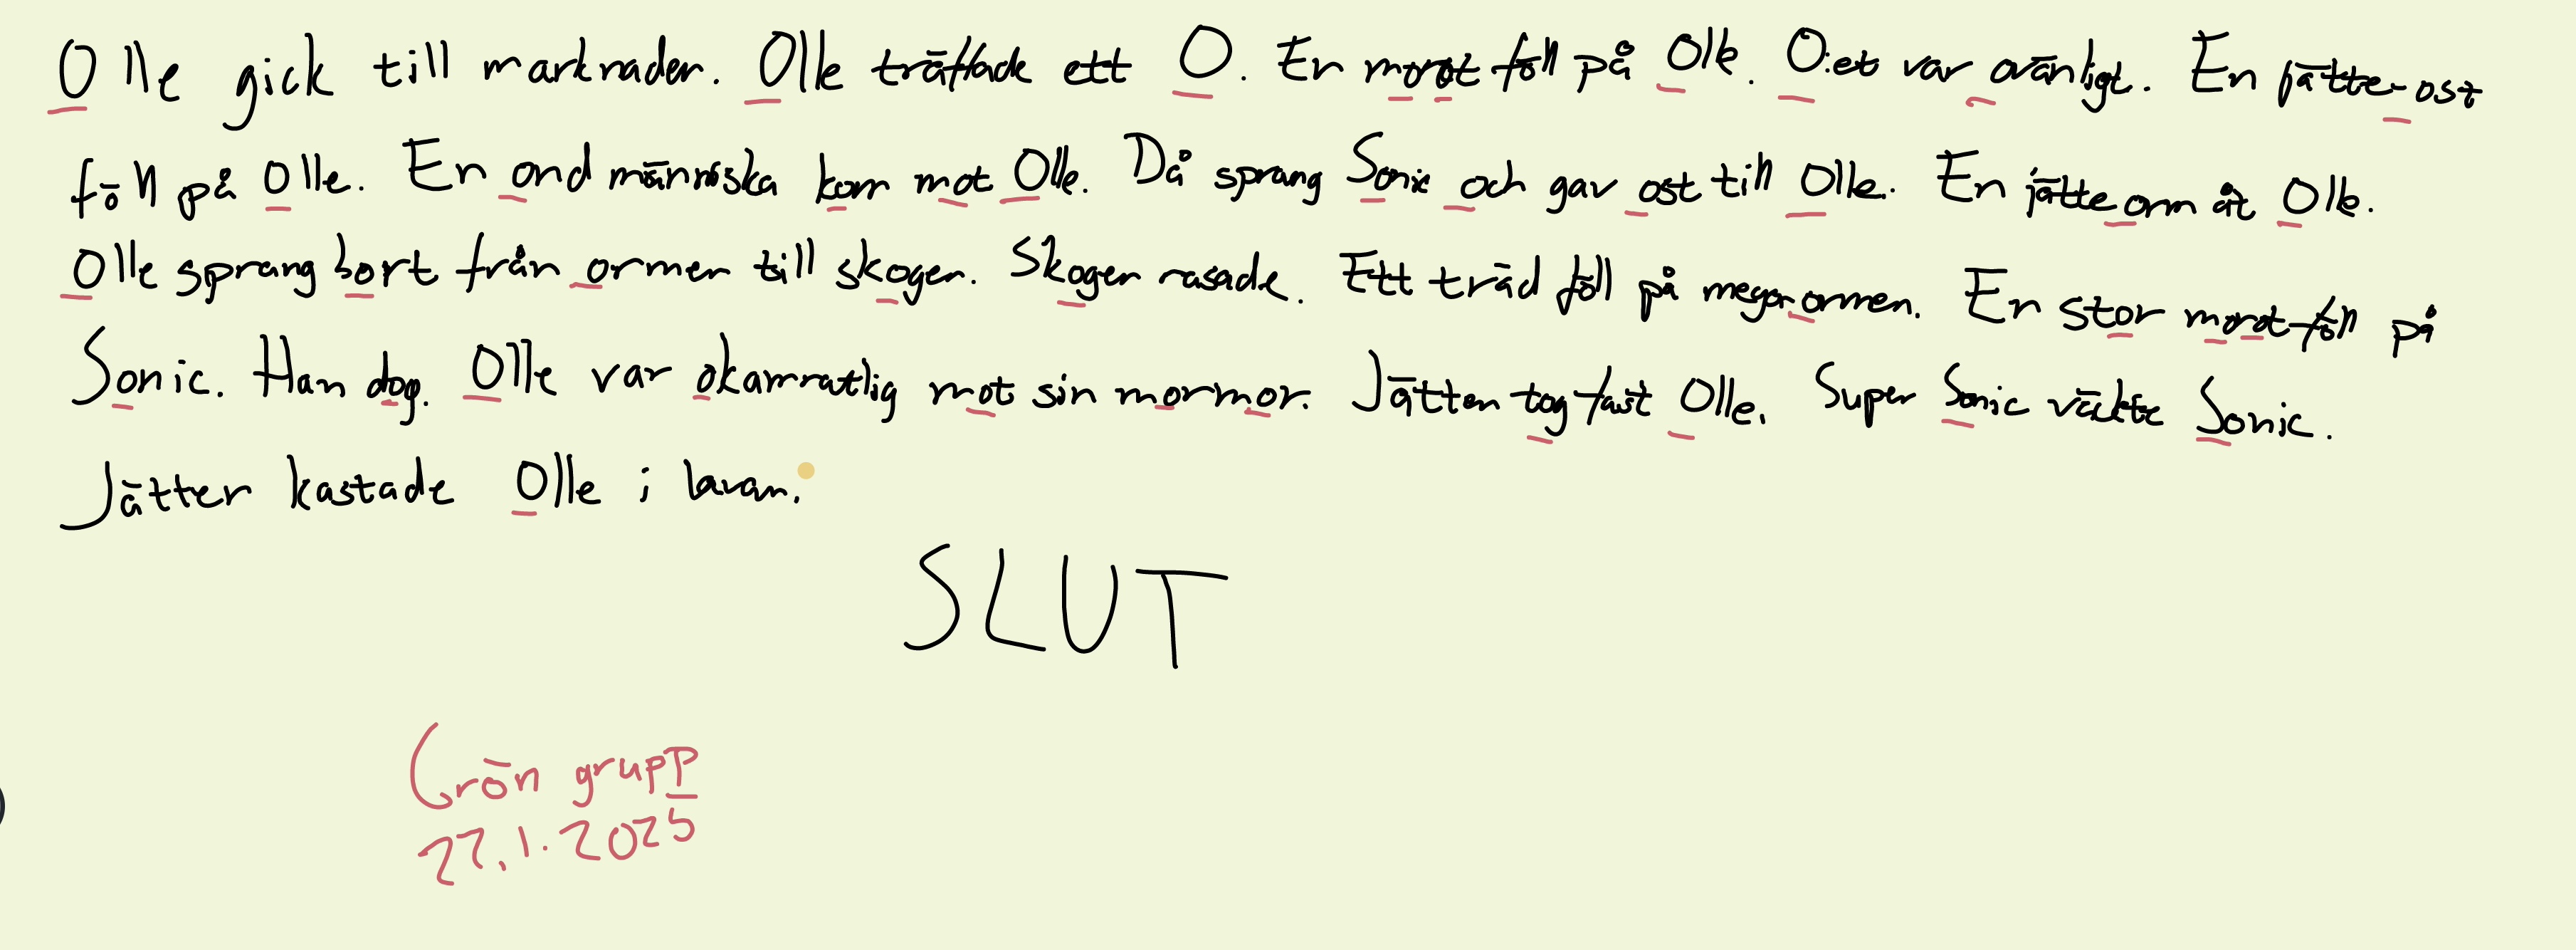 Olle gick till marknaden. Olle träffade ett O. En morot föll på Olle. O:et var ovänligt. En jätte-ost
föll på Olle. En ond människa kom mot Olle. Då sprang Sonic och gav ost till Olle. En jätteorm åt Olle.
Olle sprang bort från ormen till skogen. Skogen rasade. Ett träd föll på megaormen. En stor morot föll på
Sonic. Han dog. Olle var okamratlig mot sin mormor. Jätten tog fast Olle. Super Sonic väckte Sonic.
Jätten kastade Olle i lavan.
SLUT
Grön grupp
22.1.2025